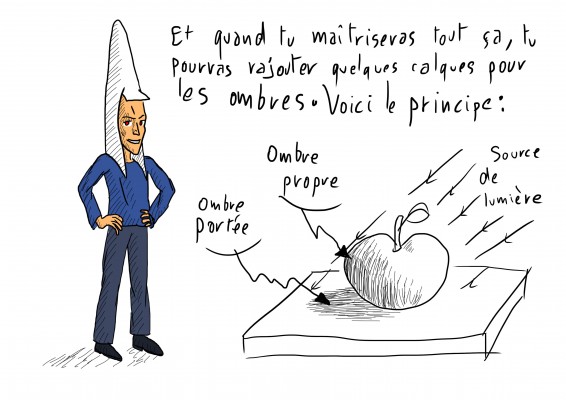 Et quand tu maîtriseras tout ça, tu
pourras rajouter quelques calques pour
les ombres. Voici le principe :
Ombre
propre
Source
de
lumière
Ombre
portée